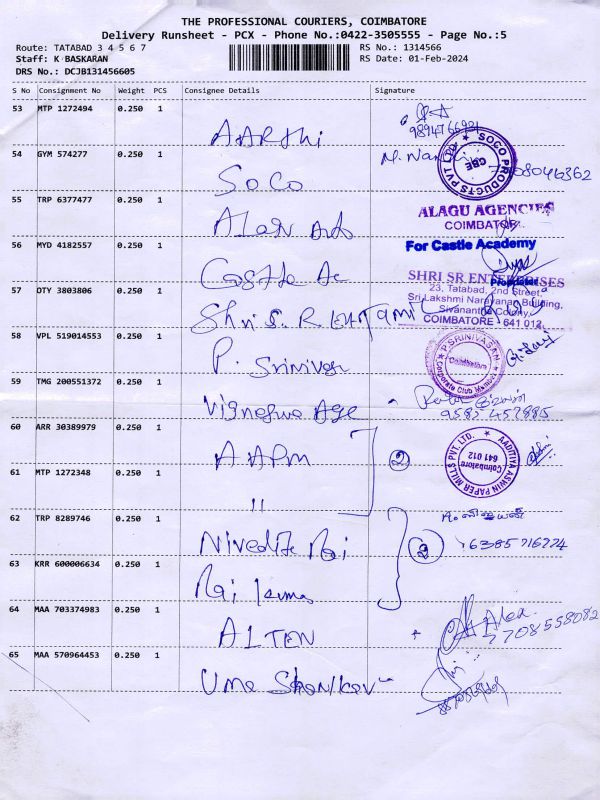 THE PROFESSIONAL COURIERS, COIMBATORE
Delivery Runsheet - PCX - Phone No.:0422-3505555 - Page No.:5
Route: TATABAD 3 4 5 6 7
RS No.: 1314566
Staff: K BASKARAN
RS Date: 01-Feb-2024
DRS No.: DCJB131456605
S No Consignment No Weight PCS Consignee Details Signature
53 MTP 1272494 0.250 1 AARTHI
54 GYM 574277 0.250 1 SOCO
SOCO PRODUCTS PVT LTD CBE
55 TRP 6377477 0.250 1 Alagu
ALAGU AGENCIES
COIMBATORE
56 MYD 4182557 0.250 1 Castle Ac
For Castle Academy
Proprietor
57 OTY 3803806 0.250 1 Shri S.R
SHRI SR ENTERPRISES
23, Tatabad, 2nd Street,
Sri Lakshmi Narayanan Building,
Sivanantha Colony,
COIMBATORE - 641 012
58 VPL 519014553 0.250 1 P. Srinivasan
P. SRINIVASAN
Corporate Club Member
Coimbatore
59 TMG 200551372 0.250 1 Vigneshwa Age
9582 457885
60 ARR 30389979 0.250 1 AAPM
2
AADITIYA ASWIN PAPER MILLS PVT. LTD.
Coimbatore
641 012
61 MTP 1272348 0.250 1 "
62 TRP 8289746 0.250 1 Nivedita Raj
2
63 KRR 600006634 0.250 1 Raj Kumar
64 MAA 703374983 0.250 1 ALTEN
Alex
7708558082
65 MAA 570964453 0.250 1 Uma Shankar